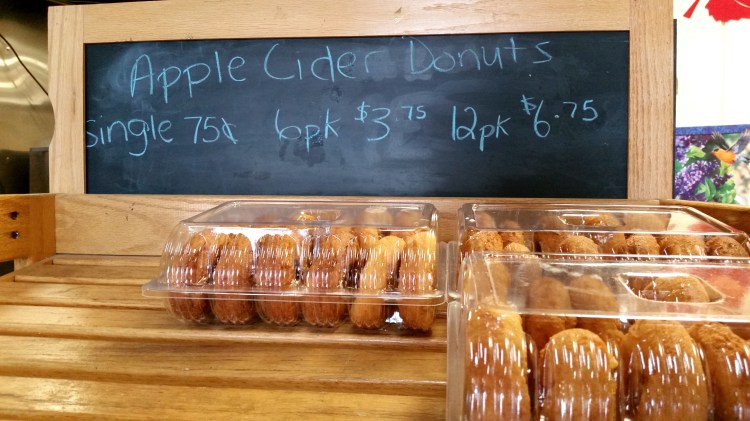 Apple Cider Donuts
single 75¢ 6pk $3.75 12pk $6.75